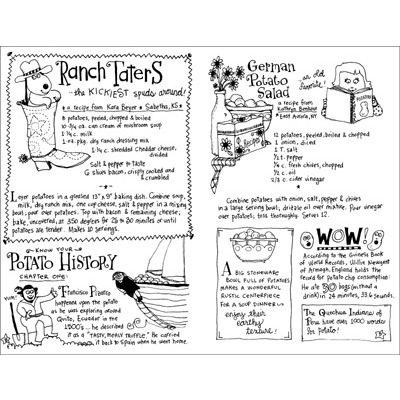 Ranch Taters
the KICKIEST spuds around!
a recipe from Kara Beyer • Sabetha, KS
8 potatoes, peeled, chopped & boiled
10-3/4 oz. can cream of mushroom soup
1 1/4 c. milk
1-oz. pkg. dry ranch dressing mix
1 1/2 c. shredded Cheddar cheese,
divided
Salt & pepper to taste
6 slices bacon, crisply cooked and
crumbled
Layer potatoes in a greased 13"x9" baking dish. Combine soup,
milk, dry ranch mix, one cup cheese, salt & pepper in a mixing
bowl; pour over potatoes. Top with bacon & remaining cheese;
bake, uncovered, at 350 degrees for 25 to 30 minutes or until
potatoes are tender. Makes 10 servings.
KNOW YOUR
POTATO HISTORY
CHAPTER ONE:
YUM!
Francisco Pizarro
happened upon the potato
as he was exploring around
Quito, Ecuador in the
1500's... he described
it as a "TASTY, MEALY TRUFFLE." He carried
it back to Spain when he went home.
German
Potato
Salad
an old
favorite!
a recipe from
Kathryn
East Aurora, NY
POTATOES
12 potatoes, peeled, boiled & chopped
1 onion, diced
1 T. salt
1/2 t. pepper
1/4 c. fresh chives, chopped
1/2 c. oil
2/3 c. cider vinegar
Combine potatoes with onion, salt, pepper & chives
in a large serving bowl; drizzle oil over mixture. Pour vinegar
over potatoes; toss thoroughly. Serves 12.
A BIG STONEWARE
BOWL FULL OF POTATOES
MAKES A WONDERFUL
RUSTIC CENTERPIECE
FOR A SOUP DINNER...
enjoy their
earthy
texture!
WOW!
According to the Guinness Book
of World Records,
of Armagh, England holds the
record for potato chip consumption:
He ate 30 bags (without a
drink) in 24 minutes, 33.6 seconds.
The Quechua Indians of
Peru have over 1000 words
for potato!